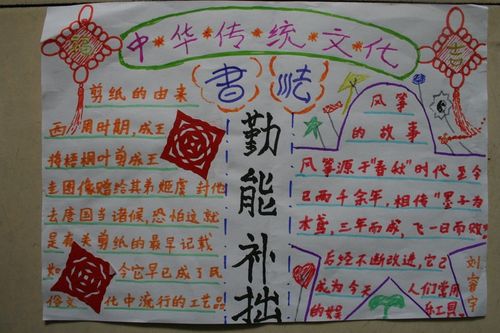 中华传统文化
书法
剪纸的由来
西周时期,成王
将梧桐叶剪成玉
圭图像赐给其弟姬虞,封他
去唐国当诸侯,恐怕这就
是有关剪纸的最早记载
如今它早已成了民
俗文化中流行的工艺品
勤能补拙
风筝
的故事
风筝源于"春秋"时代至今
已两千余年,相传"墨子为
木鸢,三年而成,飞一日而败"
后经不断改进,它已
成为今天人们常用
的娱乐工具。